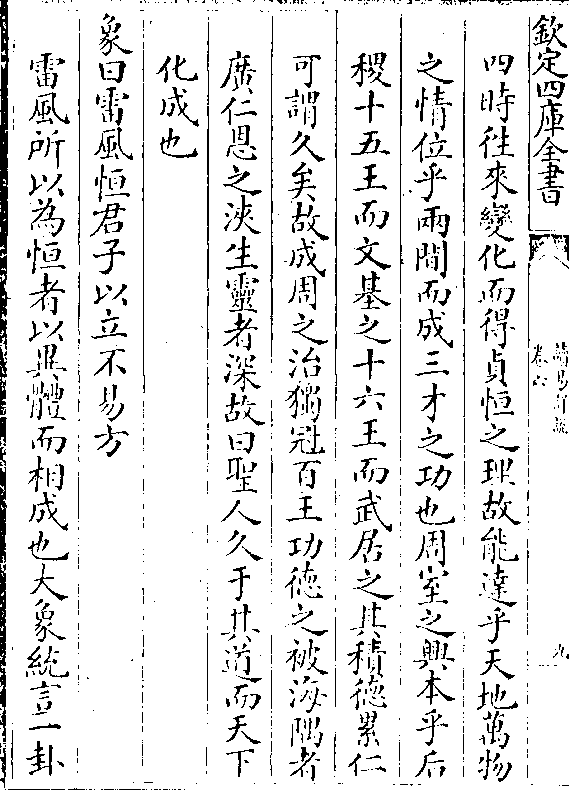 欽定四庫全書
讀易詳說
卷六
九
四時徃來變化而得貞恒之理故能達乎天地萬物
之情位乎兩間而成三才之功也周室之興本乎后
稷十五王而文基之十六王而武居之其積德累仁
可謂久矣故成周之治獨冠百王功德之被海隅者
廣仁恩之浹生靈者深故曰聖人久于其道而天下
化成也
象曰雷風恒君子以立不易方
雷風所以為恒者以異體而相成也大象統言二卦